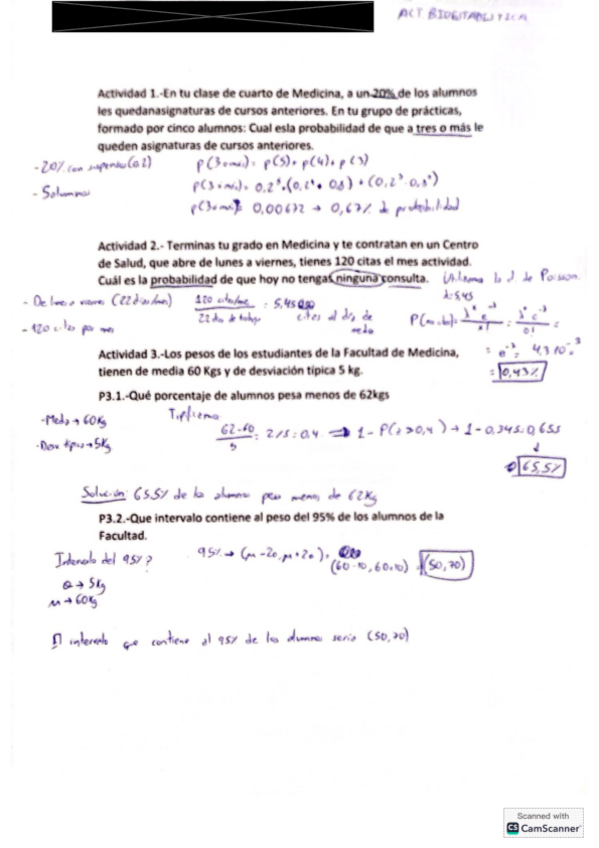 ACT. BIOESTADÍSTICA
Actividad 1.-En tu clase de cuarto de Medicina, a un 20% de los alumnos
les quedanasignaturas de cursos anteriores. En tu grupo de prácticas,
formado por cinco alumnos: Cual esla probabilidad de que a tres o más le
queden asignaturas de cursos anteriores.
-20% con suspenso (0,2)
- 5 alumnos
p(3 o más)= p(5)+ p(4)+ p(3)
p(3 o más)= 0,2⁵+(0,2⁴· 0,8) + (0,2³·0,8²)
p(3 o más)= 0,00672 → 0,67% de probabilidad
Actividad 2.- Terminas tu grado en Medicina y te contratan en un Centro
de Salud, que abre de lunes a viernes, tienes 120 citas el mes actividad.
Cuál es la probabilidad de que hoy no tengas ninguna consulta.
Utilizamos la d. de Poisson
λ=5,45
- De lunes a viernes (22 días/mes)
- 120 citas por mes
120 citas/mes / 22 días de trabajo = 5,45 citas al día de media
= 4,3·10⁻³
= 0,43%
Actividad 3.-Los pesos de los estudiantes de la Facultad de Medicina,
tienen de media 60 Kgs y de desviación típica 5 kg.
P3.1.-Qué porcentaje de alumnos pesa menos de 62kgs
-Media → 60Kg
-Desv típica → 5Kg
62-60 / 5 = 2/5 = 0,4 ⟹ 1 - P(z>0,4) → 1-0,345=0,655
65,5%
Solución: 65,5% de los alumnos pesa menos de 62Kg
P3.2.-Que intervalo contiene al peso del 95% de los alumnos de la
Facultad.
Intervalo del 95%?
σ → 5Kg
μ → 60Kg
95% → (μ-2σ, μ+2σ)=
(60-10, 60+10) = (50, 70)
El intervalo que contiene al 95% de los alumnos sería (50,70)
Scanned with
CS CamScanner